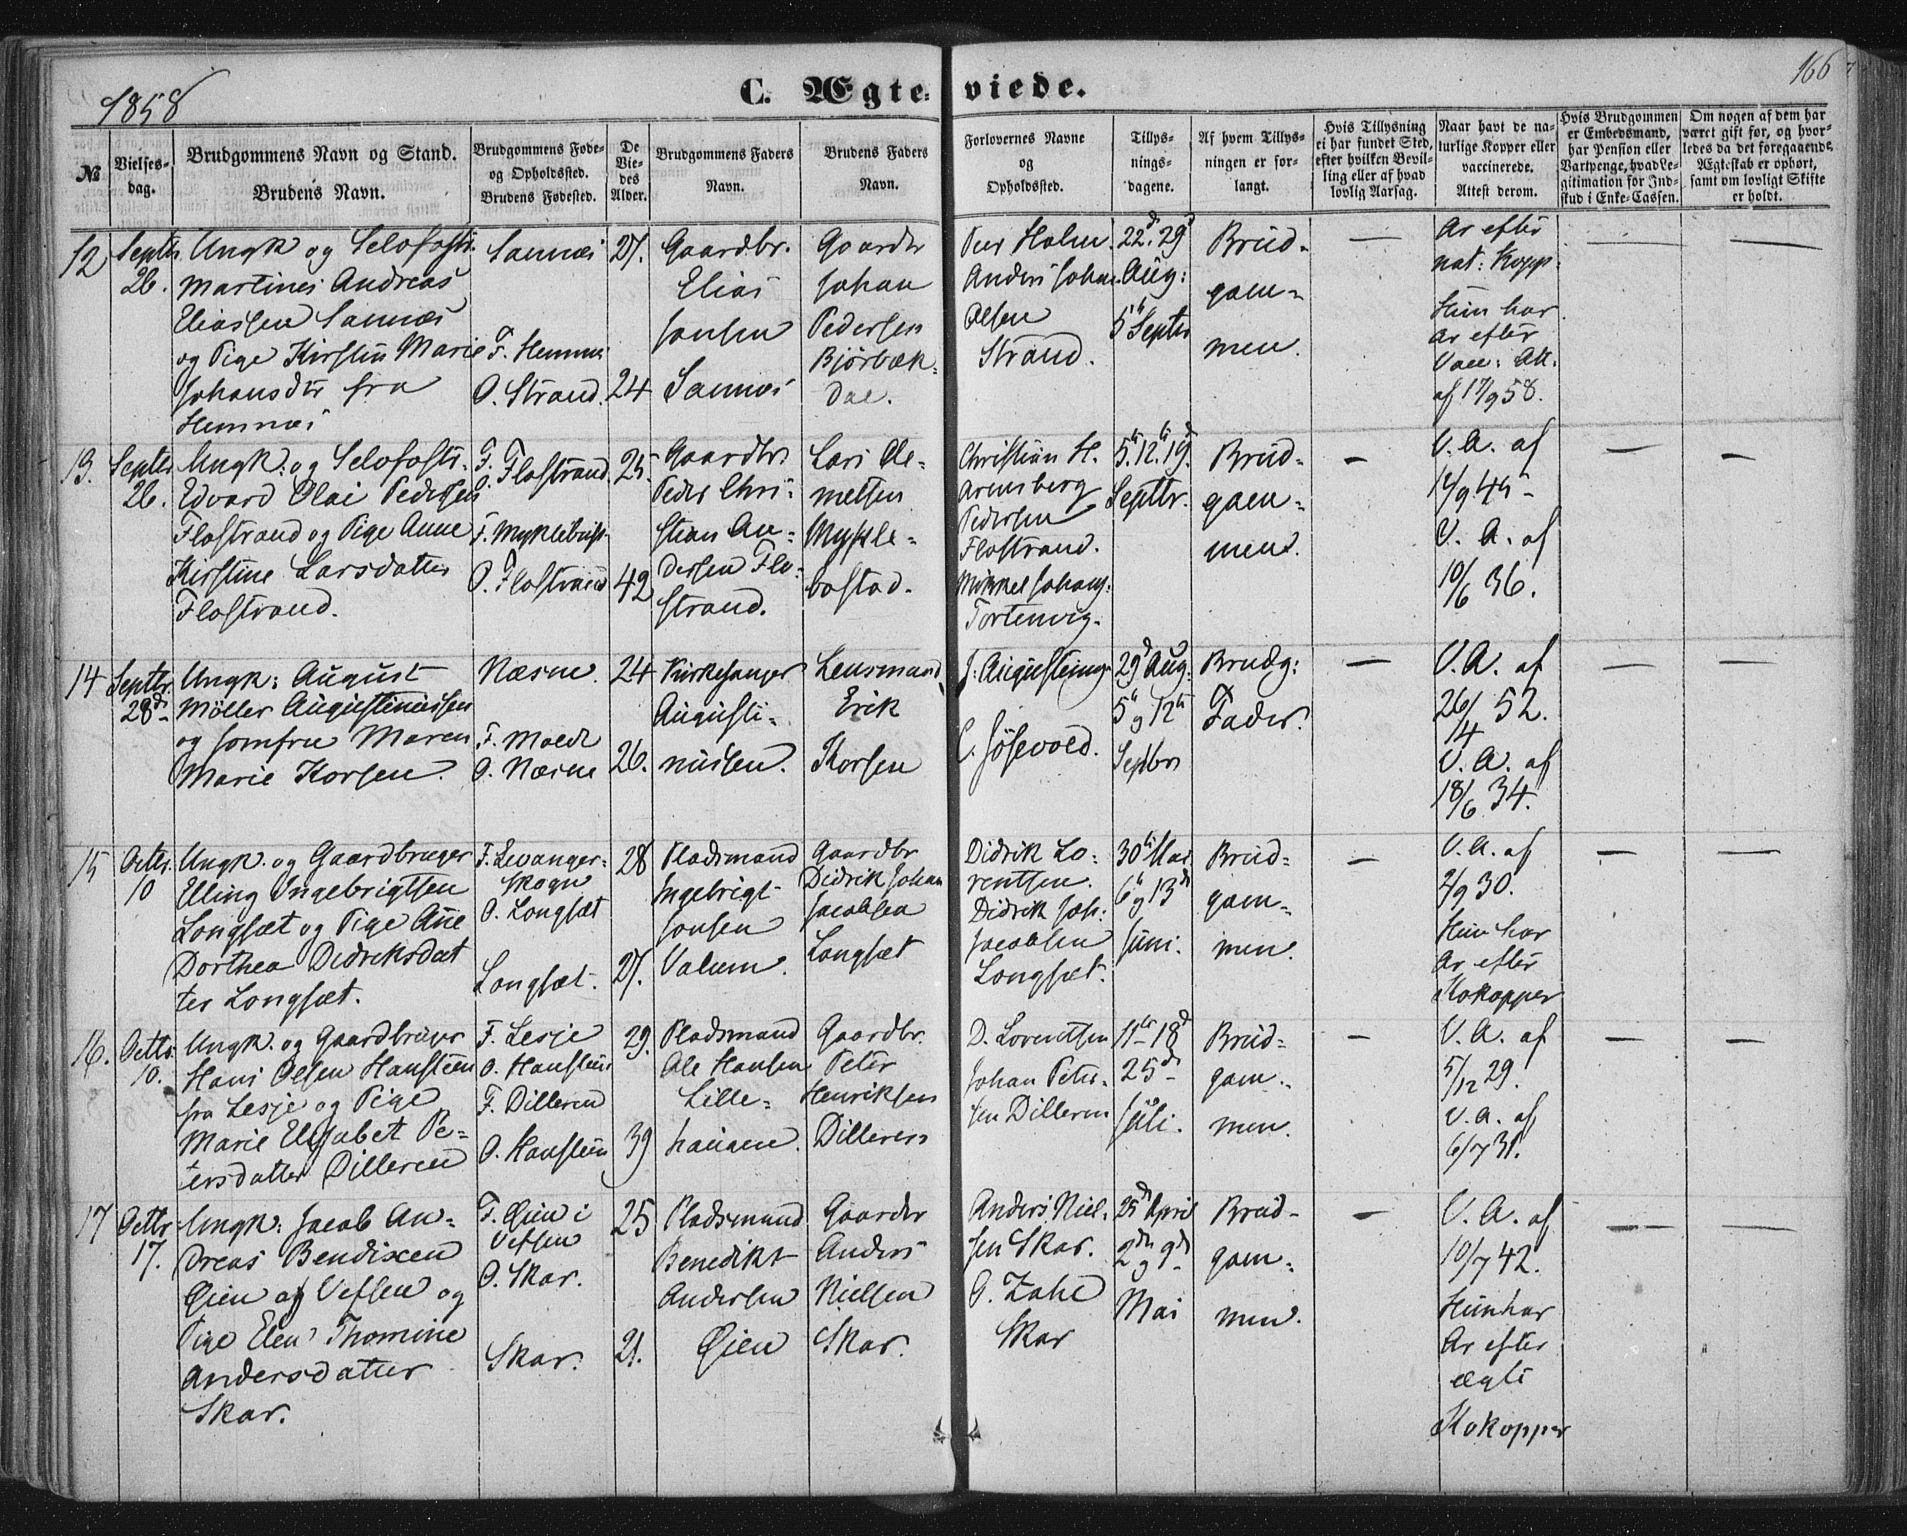 1858
C. Ægte-viede.
166
№
Vielses-
dag.
Brudgommens Navn og Stand.
Brudens Navn.
Brudgommens Føde-
og Opholdssted.
Brudens Fødested.
De
Vie-
des
Alder.
Brudgommens Faders
Navn.
Brudens Faders
Navn.
Forlovernes Navne
og
Opholdssted.
Tillys-
nings-
dagene.
Af hvem Tillys-
ningen er for-
langt.
Hvis Tillysning
ei har fundet Sted,
efter hvilken Bevil-
ling eller af hvad
lovlig Aarsag.
Naar havt de na-
turlige Kopper eller
vaccinerede.
Attest derom.
Hvis Brudgommen
er Embedsmand,
har Pension eller
Vartpenge, hvad Le-
gitimation for Ind-
skud i Enke-Cassen.
Om nogen af dem har
været gift før, og hvor-
ledes da det foregaaende
Ægteskab er ophørt,
samt om lovligt Skifte
er holdt.
12
Septbr
26.
Ungk og Selofosti.
Martines Andreas
Eliassen Sannæs
og Pige Kirsten Marie
Johansdtr fra
Hemnæs
Sannæs
F. Hemnæs
O. Strand.
27.
24
Gaardbr.
Elias
Jonsen
Sannæs
Gaardbr
Johan
Pedersen
Bjørbæk-
dal.
Peer Holm.
Anders Johan
Olsen
Strand.
22d 29d
Aug:
5te Septbr
Brud-
gom-
men.
—
Ar efter
nat: Kopp.
Hun har
Ar efter
Vacc: Att.
af 17/9 58.
—
—
13.
Septbr
26.
Ungk: og Selofosti-
Edvard Olai Pedersen
Flostrand og Pige Anne
Kirstine Larsdatter
Flostrand.
F.
O. Flostrand.
F. Myklebust-
O. Flostrand
25.
42
Gaardbr
Peder Chri-
stian An-
dersen Flo-
strand.
Lars Cle-
metsen
Mykle-
bostad.
Christian H.
Arensberg
Pedersen
Flostrand.
Mikkel Johans:
Tortenvig.
5te 12te 19d
Septbr.
Brud-
gom-
men.
—
V. A. af
V. A. af
10/6 36.
—
—
14
Septbr
28d
Ungk: August
Møller Augustinussen
og Jomfru Maren
Marie Korsen.
Næsne.
F. Molde
O. Næsne
24
26.
Kirkesanger
Augusti-
nussen.
Lensmand
Erik
Korsen
J. Augustinus
C. Jøsevold.
29d Aug:
5te og 12te
Septbr
Brudg:
Fader.
—
V. A. af
26/14 52.
V. A. af
18/6 34.
—
—
15
Octbr.
10
Ungk. og Gaardbruger
Elling Ingebrigtsen
Longsæt og Pige Ane
Dorthea Didriksdat
ter Longsæt.
F. Levanger-
Skogn
O. Longsæt
Longsæt.
28
27.
Pladsmand
Ingebrigt
Jonsen
Valum.
Gaardbr
Didrik Johan
Jacobsen
Longsæt
Didrik Lo-
rentsen.
Didrik Joh:
Jacobsen
Longsæt.
30te Mai
6te og 13d
Juni.
Brud-
gom-
men.
—
V. A. af
2/9 30.
Hun har
Ar efter
Kokopper
—
—
16.
Octbr.
10.
Ungk. og Gaardbruger
Hans Olsen Hansteen
fra Lesje og Pige
Marie Elisabet Pe-
tersdatter Dilleren
F. Lesje
O. Hansteen
F. Dilleren
O. Hansteen
29.
39
Pladsmand
Ole Hansen
Lille-
haugen.
Gaardbr.
Peter
Henriksen
Dilleren
D. Lorentsen
Johan Peter-
sen Dilleren
11te 18d
25d
Juli.
Brud-
gom-
men.
—
V. A. af
5/12 29.
V. A. af
6/7 31.
—
—
17
Octbr
17.
Ungk: Jacob An-
dreas Bendixen
Øien af Vefsen og
Pige Elen Thomine
Andersdatter
Skar.
F. Øien i
Vefsen
O. Skar.
Skar.
25
21.
Pladsmand
Benedikt
Andersen
Øien
Gaardbr
Anders
Nielsen
Skar.
Anders Niel-
sen Skar.
G. Zahl
Skar
25d April
2den og 9d
Mai
Brud-
gom-
men.
—
V. A. af
10/7 42.
Hun har
Ar efter
ægte
Kokopper
—
—